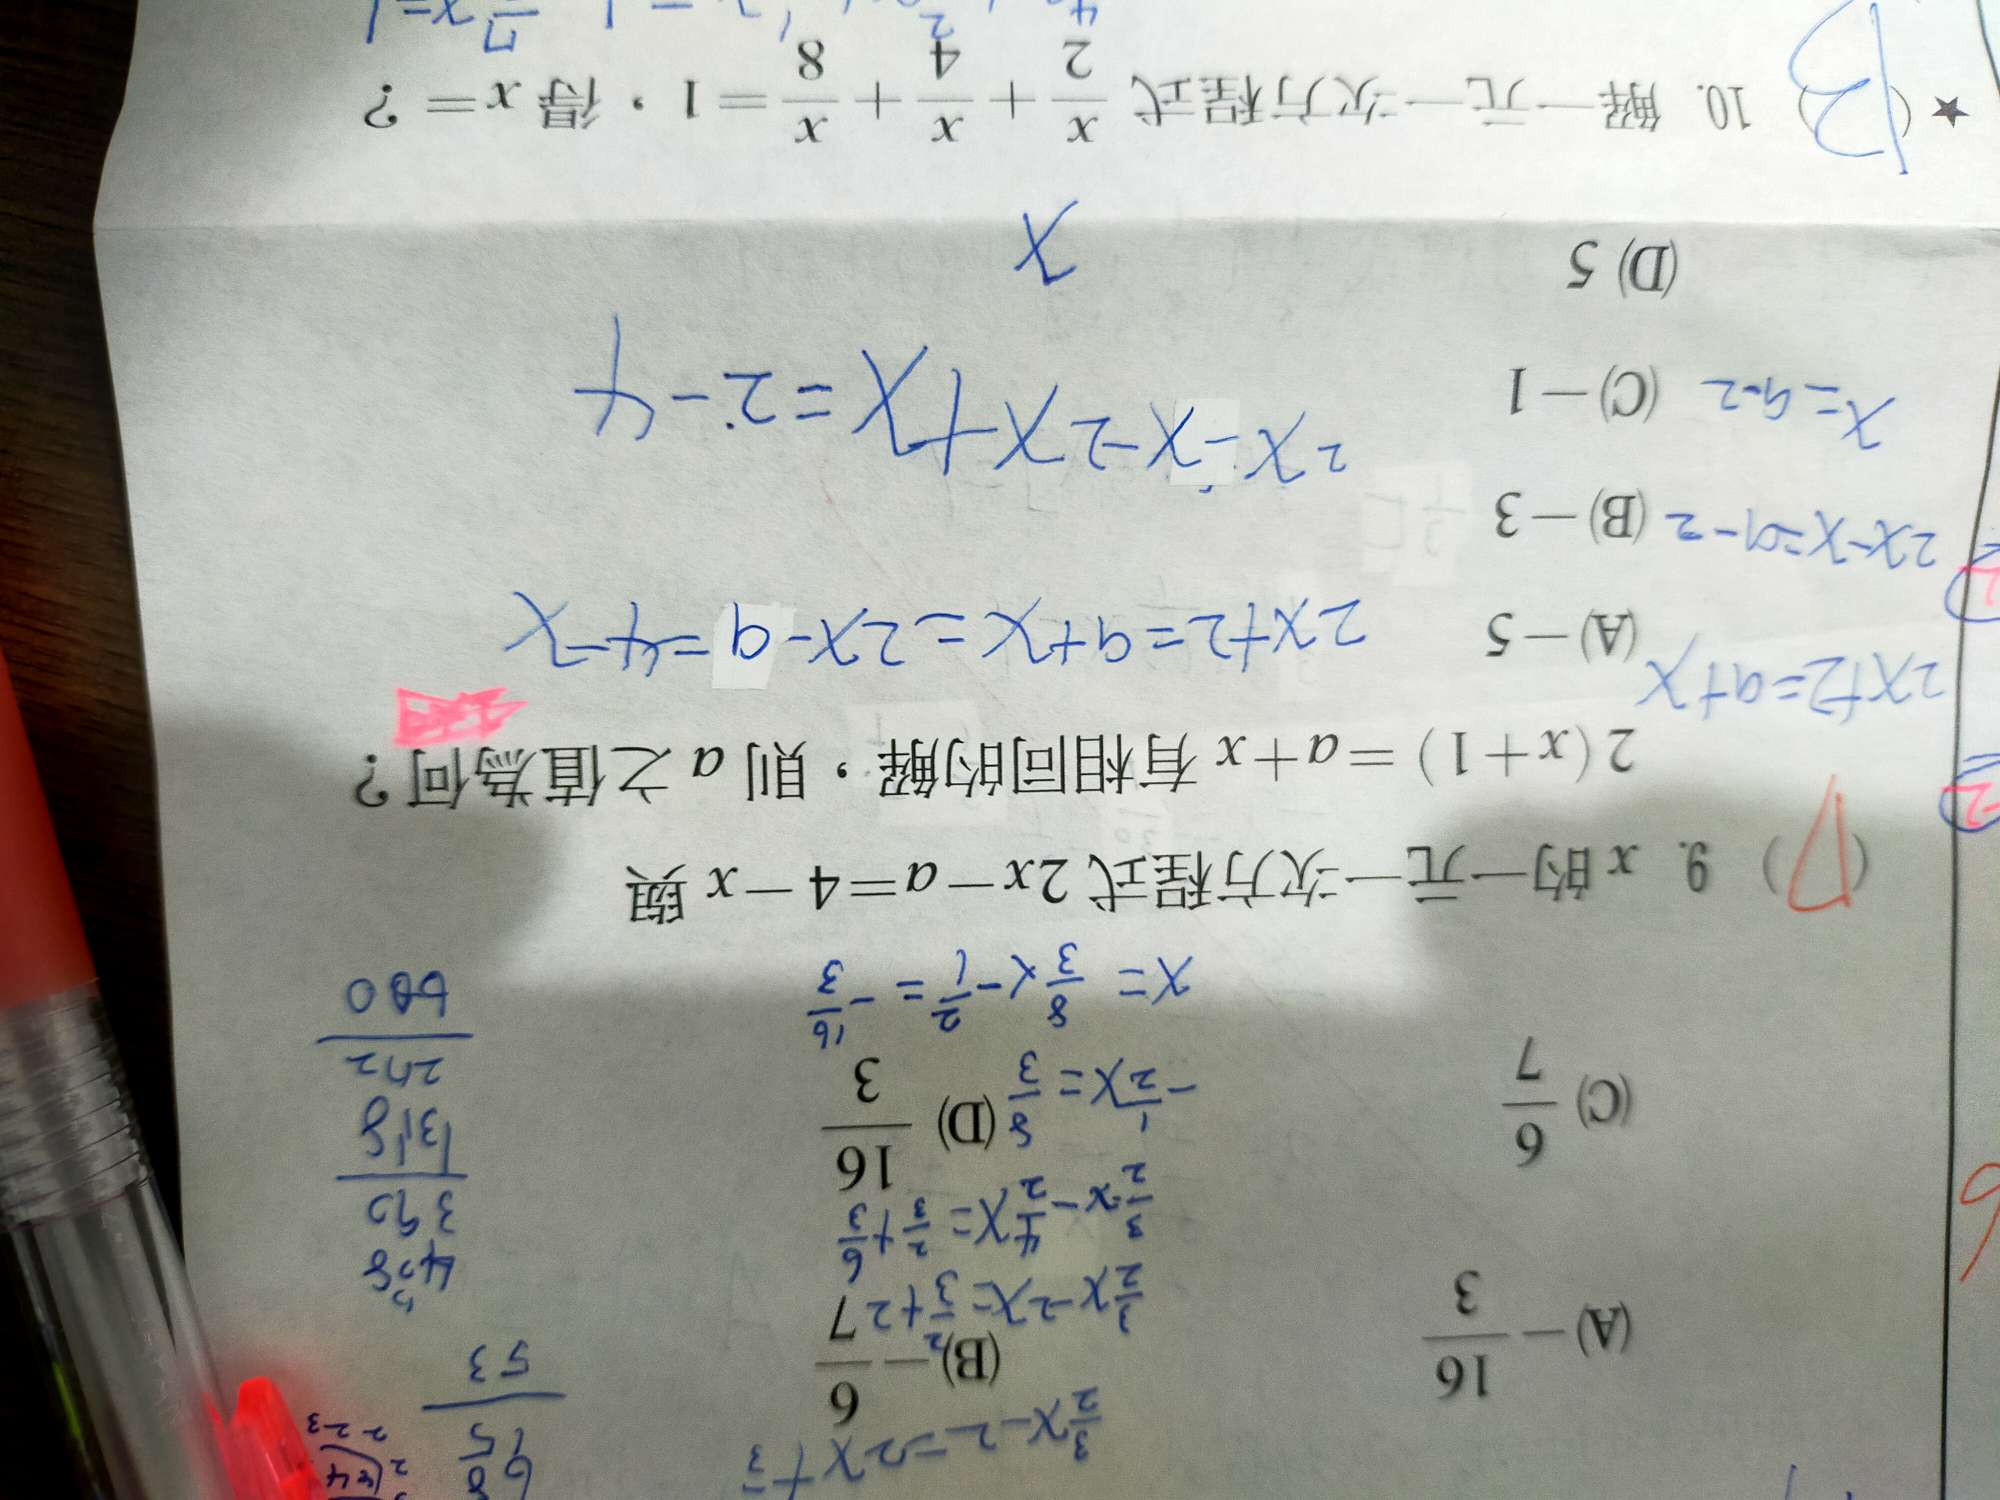 3/2 x - 2 = 2x + 2/3
(A) - 16/3
(B) - 6/7
3/2 x - 2x = 2/3 + 2
3/2 x - 4/2 x = 2/3 + 6/3
(C) 6/7
(D) 16/3
- 1/2 x = 8/3
x = 8/3 × - 2/1 = - 16/3
53
408
390
1318
660
(D) 9. x 的一元一次方程式 2x－a＝4－x 與
2(x＋1)＝a＋x 有相同的解，則 a 之值為何？
2x+2=a+x
(A)－5
2x+2=a+x=2x-a=4-x
2x-x=a-2
(B)－3
x=a-2
(C)－1
2x-x-2x+x=2-4
(D) 5
x
★(B) 10. 解一元一次方程式 x/2 + x/4 + x/8 ＝1，得 x＝？